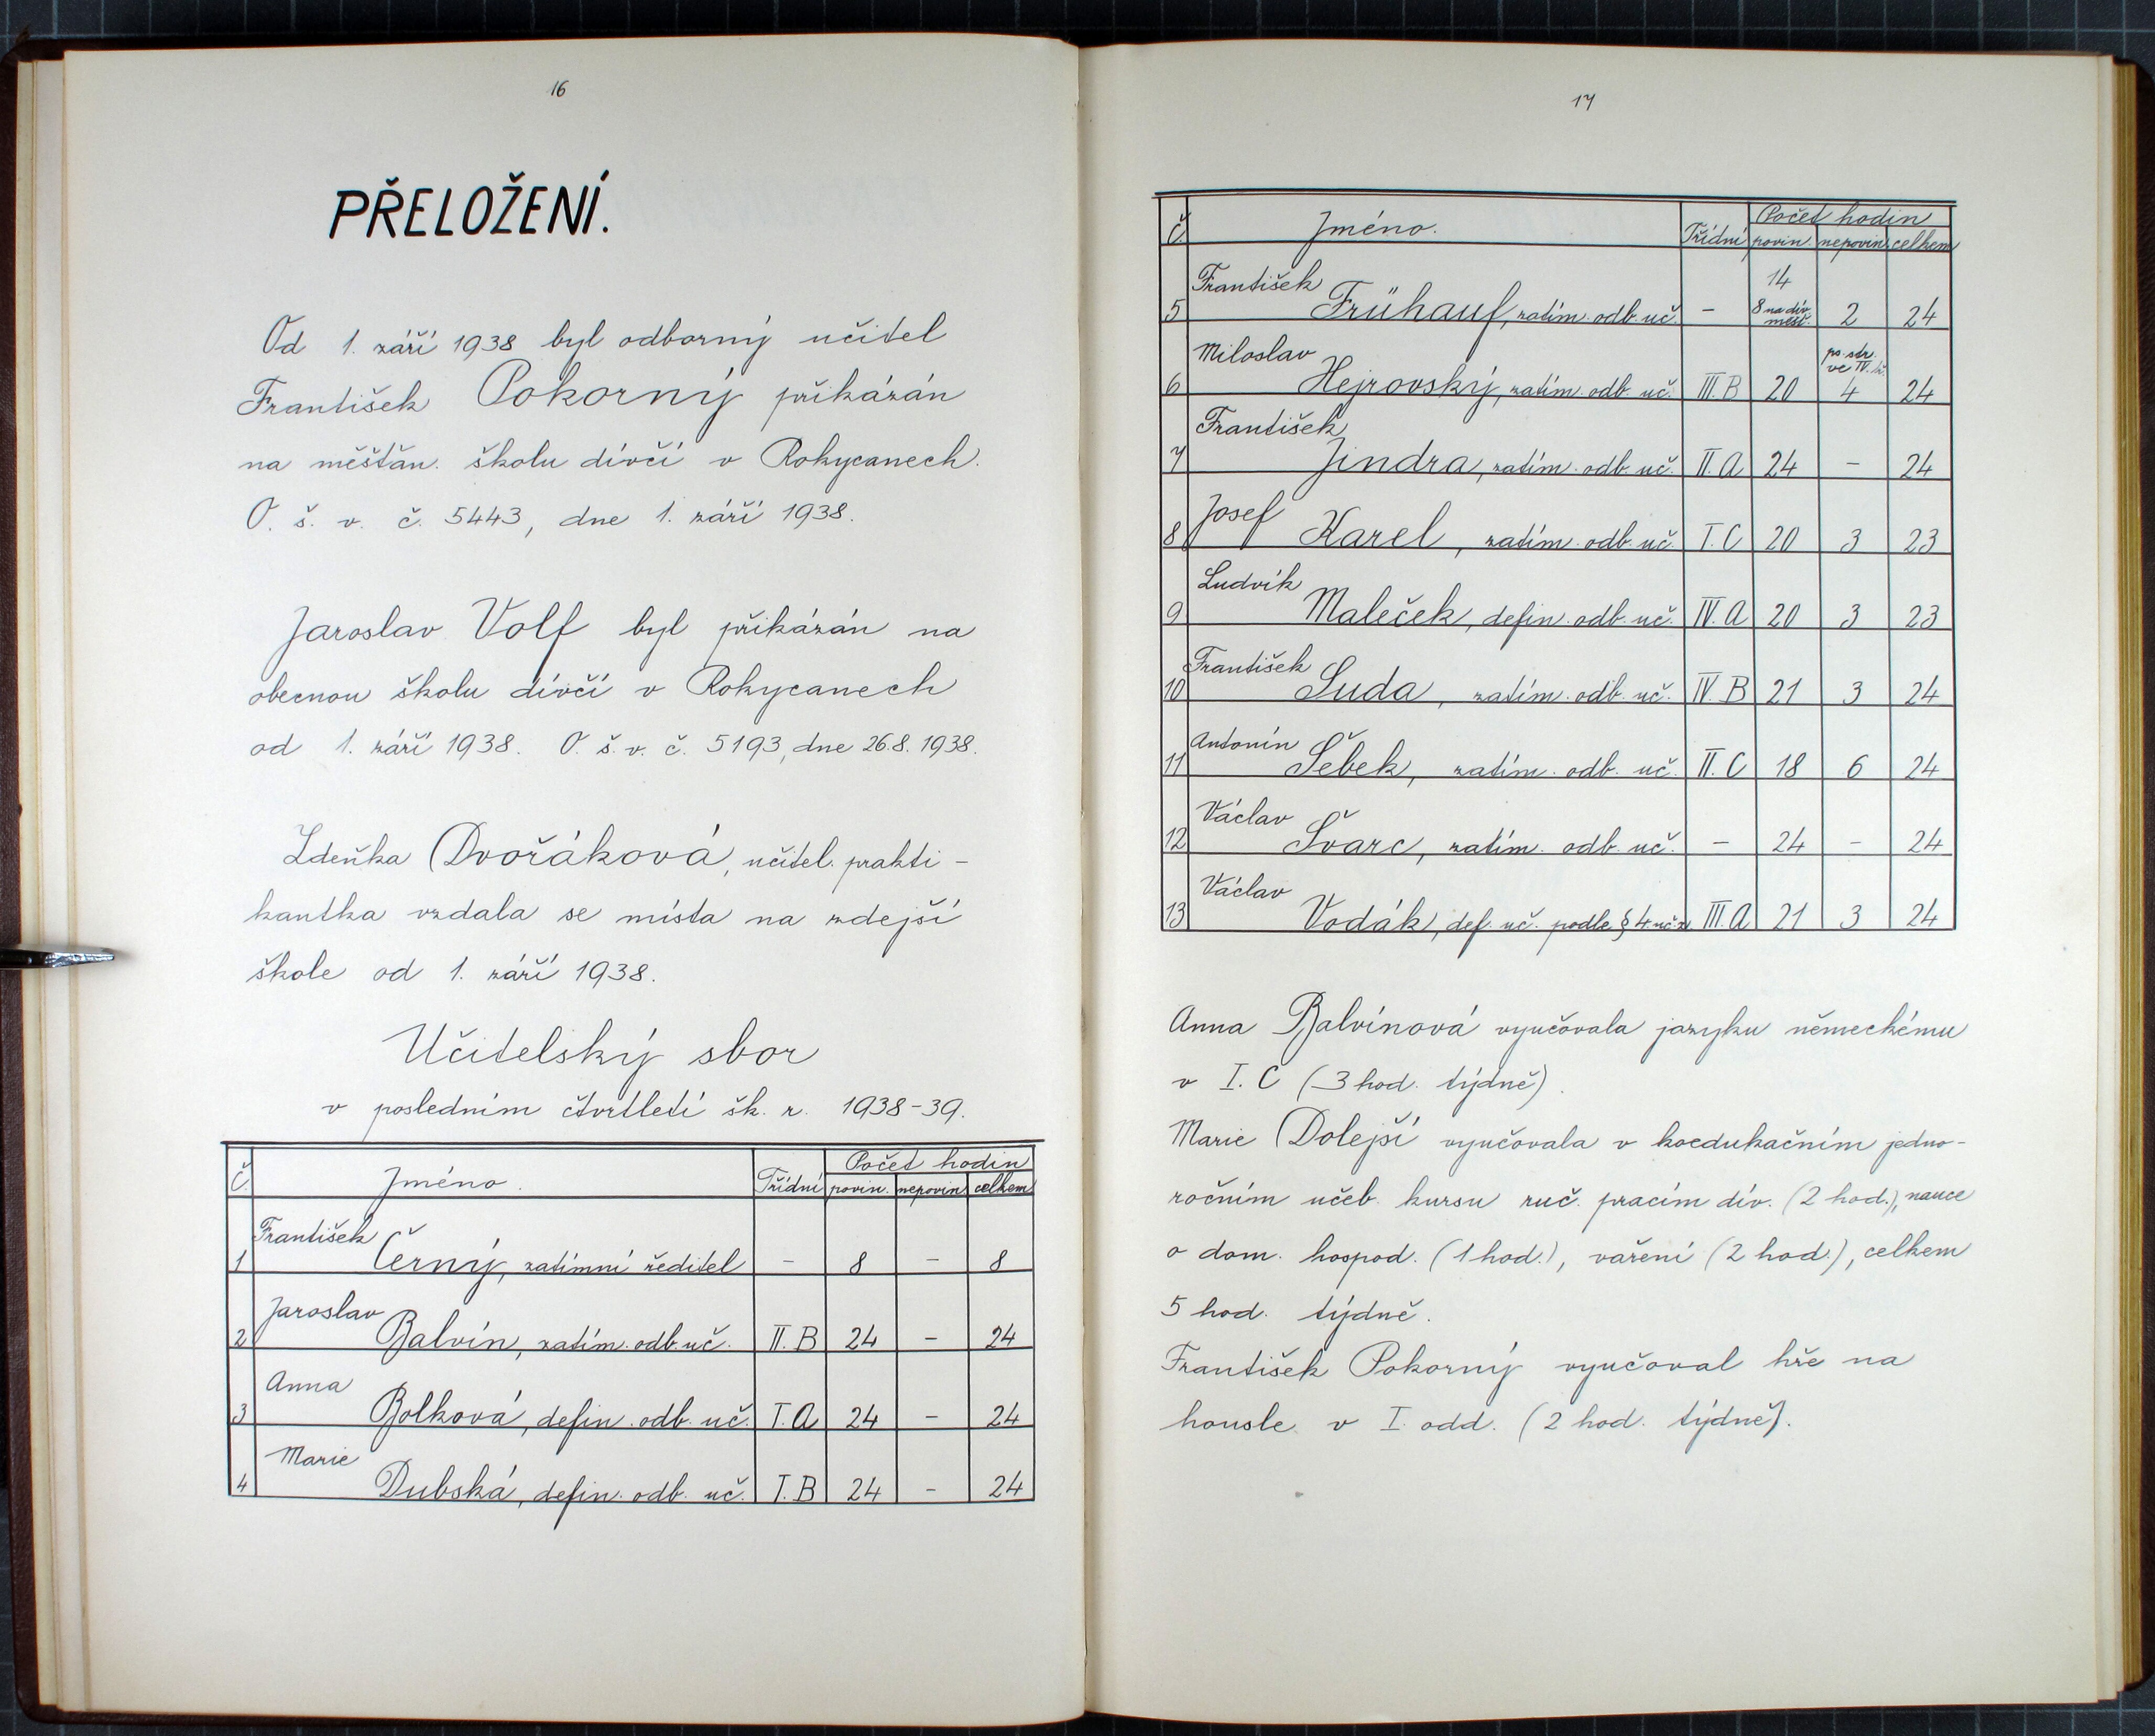 16
PŘELOŽENÍ.
Od 1. září 1938 byl odborný učitel
František Pokorný přikázán
na měšťan. školu dívčí v Rokycanech.
O. š. v. č. 5443, dne 1. září 1938.
Jaroslav Volf byl přikázán na
obecnou školu dívčí v Rokycanech
od 1. září 1938. O. š. v. č. 5193, dne 26.8. 1938.
Zdeňka Dvořáková, učitel. prakti-
kantka vzdala se místa na zdejší
škole od 1. září 1938.
Učitelský sbor
v posledním čtvrtletí šk. r. 1938-39.
Č. Jméno. Třídní Počet hodin
povin. nepovin. celkem
František
1 Černý, zatímní ředitel - 8 - 8
Jaroslav
2 Balvín, zatím. odb. uč. II. B 24 - 24
Anna
3 Bolková, defin. odb. uč. I. A 24 - 24
Marie
4 Dubská, defin. odb. uč. I. B 24 - 24
17
Č. Jméno. Třídní Počet hodin
povin. nepovin. celkem
František 14
5 Frühauf, zatím. odb. uč. - 8 na dív. měšť. 2 24
Miloslav ps. str. ve IV. tř.
6 Hejrovský, zatím. odb. uč. III. B 20 4 24
František
7 Jindra, zatím. odb. uč. II. A 24 - 24
Josef
8 Karel, zatím. odb. uč. I. C 20 3 23
Ludvík
9 Maleček, defin. odb. uč. IV. A 20 3 23
František
10 Suda, zatím. odb. uč. IV. B 21 3 24
Antonín
11 Šebek, zatím. odb. uč. II. C 18 6 24
Václav
12 Švarc, zatím. odb. uč. - 24 - 24
Václav
13 Vodák, def. uč. podle § 4 uč. z. III. A 21 3 24
Anna Balvínová vyučovala jazyku německému
v I. C (3 hod. týdně).
Marie Dolejší vyučovala v koedukačním jedno-
ročním učeb. kursu ruč. pracím dív. (2 hod.), nauce
o dom. hospod. (1 hod.), vaření (2 hod.), celkem
5 hod. týdně.
František Pokorný vyučoval hře na
housle v I. odd. (2 hod. týdně).